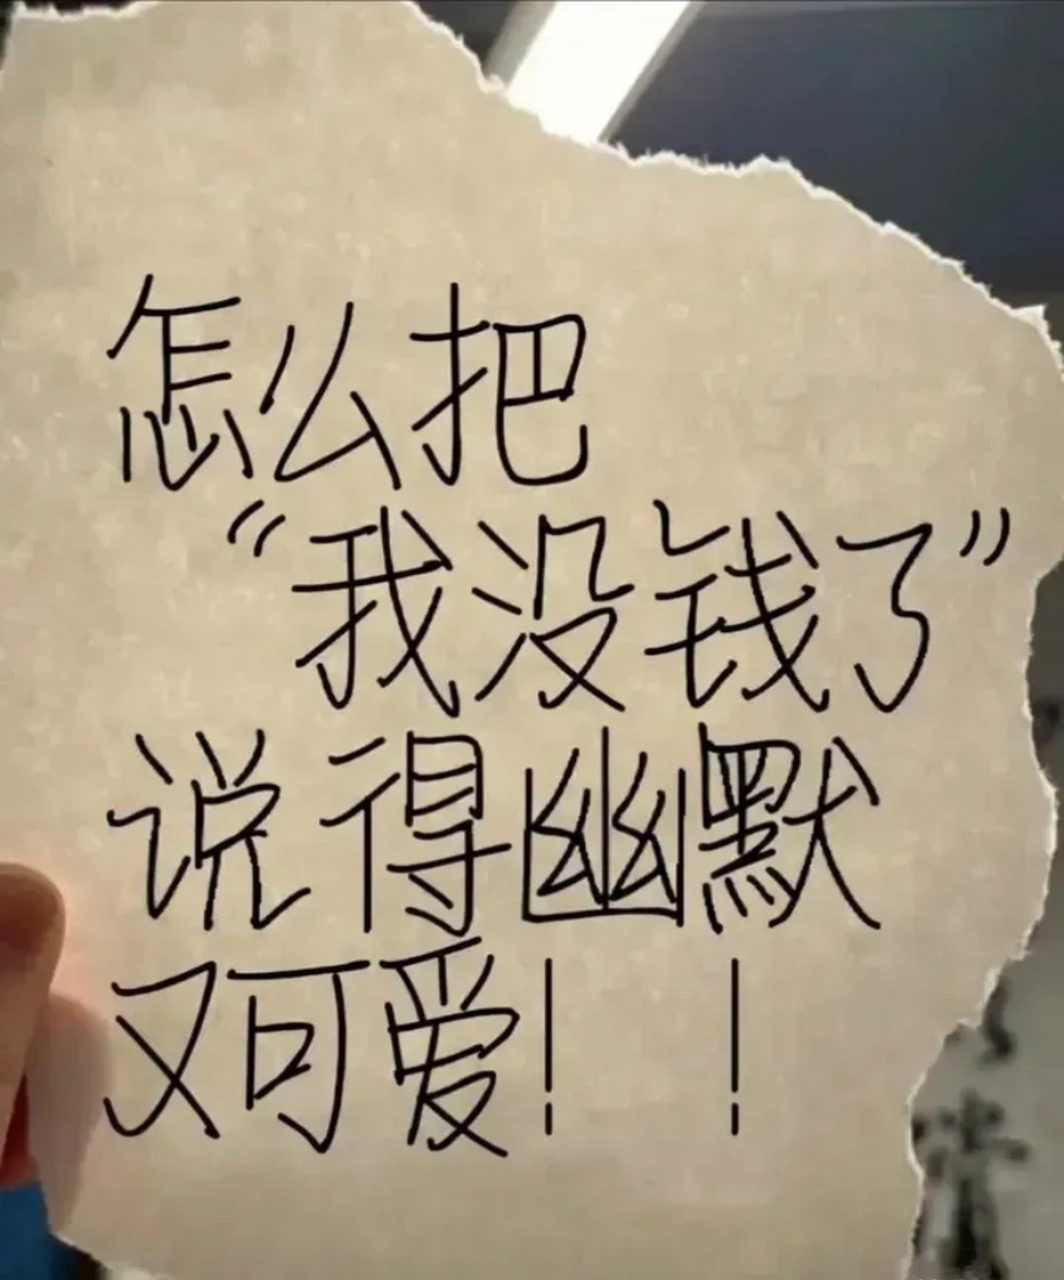 怎么把
“我没钱了”
说得幽默
又可爱！！